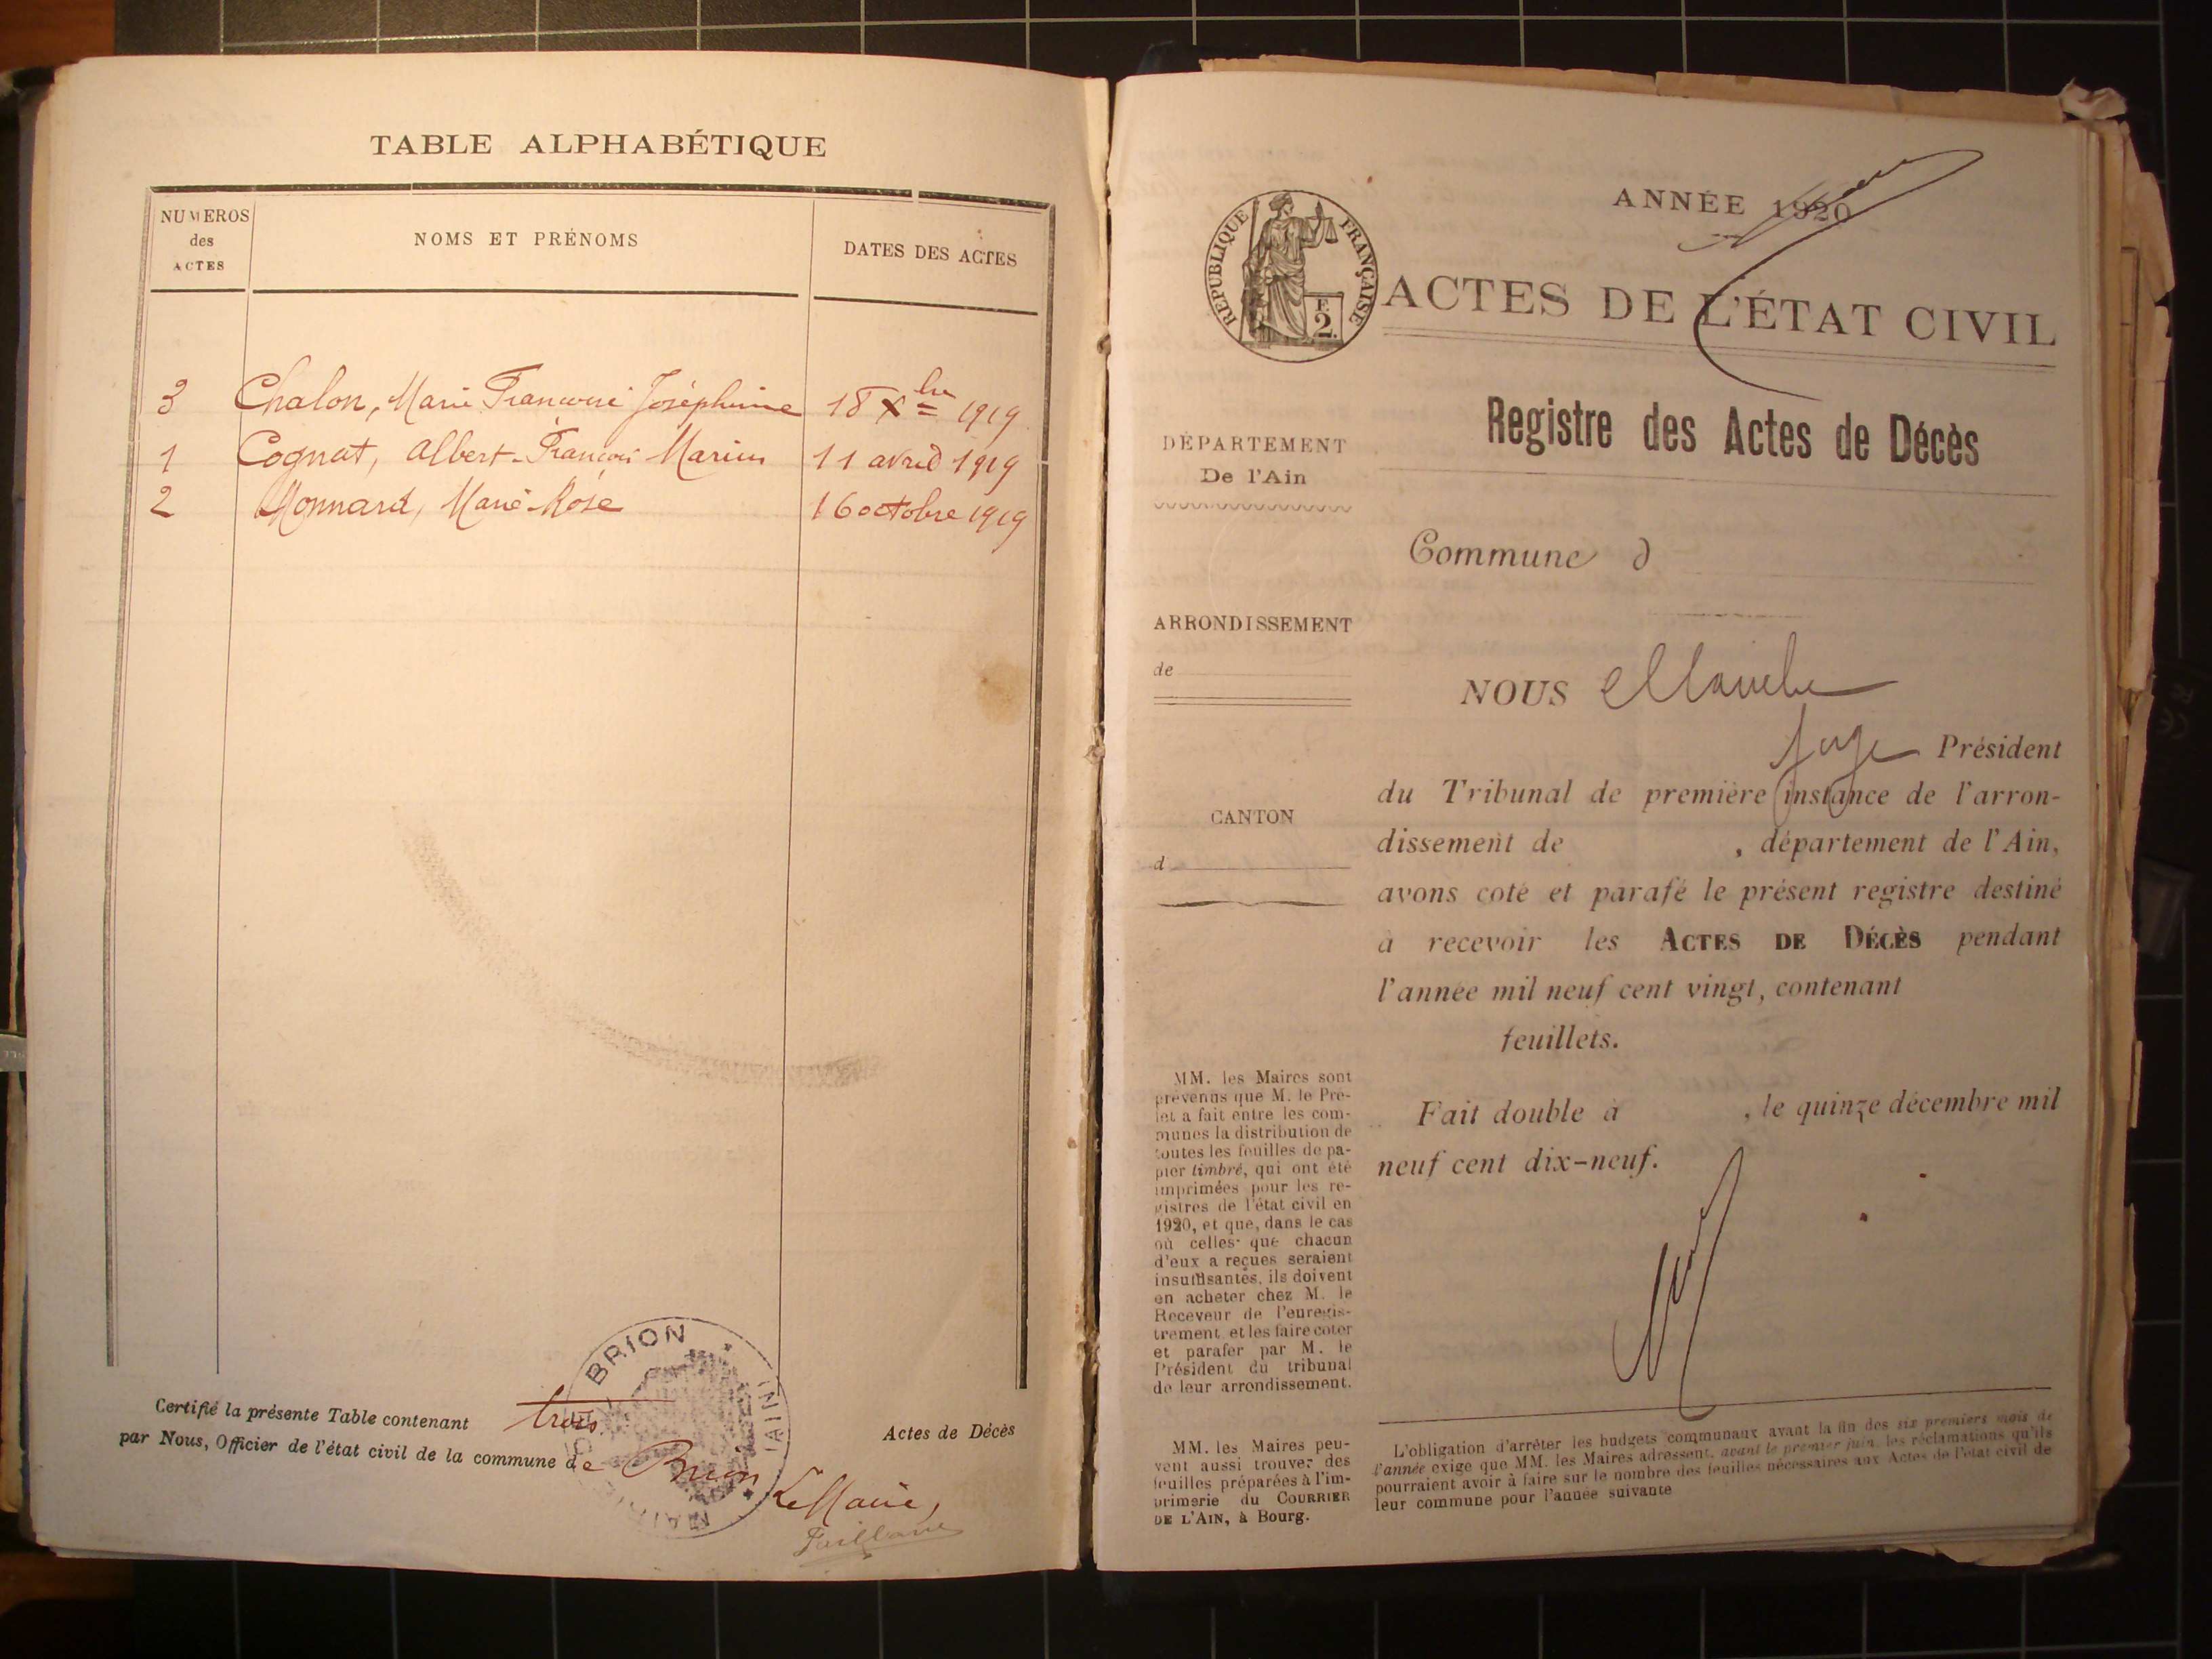 TABLE ALPHABÉTIQUE
NUMEROS
des
ACTES
NOMS ET PRÉNOMS
DATES DES ACTES
3 Chalon, Marie Françoise Joséphine 18 Xbre 1919
1 Cognat, Albert-François Marius 11 avril 1919
2 Monnard, Marie-Rose 16 octobre 1919
Certifié la présente Table contenant trois Actes de Décès
par Nous, Officier de l'état civil de la commune de Brion
BRION
(AIN)
MAIRIE
Le Maire,
ANNÉE 1920
RÉPUBLIQUE FRANÇAISE
F.
2.
ACTES DE L'ÉTAT CIVIL
Registre des Actes de Décès
DÉPARTEMENT
De l'Ain
Commune d
ARRONDISSEMENT
de
CANTON
d
NOUS
Juge Président
du Tribunal de première instance de l'arron-
dissement de , département de l'Ain,
avons coté et parafé le présent registre destiné
à recevoir les ACTES DE DÉCÈS pendant
l'année mil neuf cent vingt, contenant
feuillets.
Fait double à , le quinze décembre mil
neuf cent dix-neuf.
MM. les Maires sont
prévenus que M. le Pré-
fet a fait entre les com-
munes la distribution de
toutes les feuilles de pa-
pier timbré, qui ont été
imprimées pour les re-
gistres de l'état civil en
1920, et que, dans le cas
où celles que chacun
d'eux a reçues seraient
insuffisantes, ils doivent
en acheter chez M. le
Receveur de l'enregis-
trement et les faire coter
et parafer par M. le
Président du tribunal
de leur arrondissement.
MM. les Maires peu-
vent aussi trouver des
feuilles préparées à l'im-
primerie du COURRIER
DE L'AIN, à Bourg.
L'obligation d'arrêter les budgets communaux avant la fin des six premiers mois de
l'année exige que MM. les Maires adressent, avant le premier juin, les réclamations qu'ils
pourraient avoir à faire sur le nombre des feuilles nécessaires aux Actes de l'état civil de
leur commune pour l'année suivante